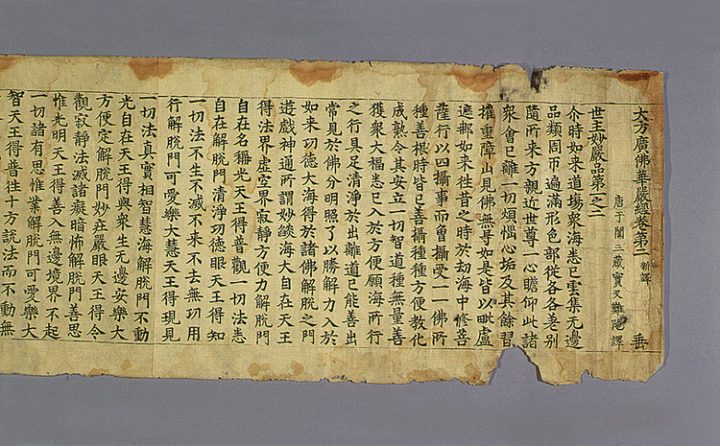 大方廣佛華嚴經卷第二 新譯 垂
唐于闐三藏實叉難陁譯
世主妙嚴品第一之二
尒時如來道場眾海悉已雲集无邊
品類周帀遍滿形色部從各各差別
隨所來方親近世尊一心瞻仰此諸
眾會已離一切煩惱心垢及其餘習
摧重障山見佛無㝵如是皆以毗盧
遮那如來往昔之時於劫海中修菩
薩行以四攝事而曾攝受一一佛所
種善根時皆已善攝種種方便教化
成熟令其安立一切智道種無量善
獲眾大福悉已入於方便願海所行
之行具足清淨於出離道已能善出
常見於佛分明照了以勝解力入於
如來功德大海得於諸佛解脫之門
遊戲神通所謂妙燄海大自在天王
得法界虛空界寂靜方便力解脫門
自在名稱光天王得普觀一切法悉
自在解脫門清淨功德眼天王得知
一切法不生不滅不來不去無功用
行解脫門可愛樂大慧天王得現見
一切法真實相智慧海解脫門不動
光自在天王得與眾生无邊安樂大
方便定解脫門妙莊嚴眼天王得令
觀寂靜法滅諸癡暗怖解脫門善思
惟光明天王得善入無邊境界不起
一切諸有思惟業解脫門可愛樂大
智天王得普往十方說法而不動無